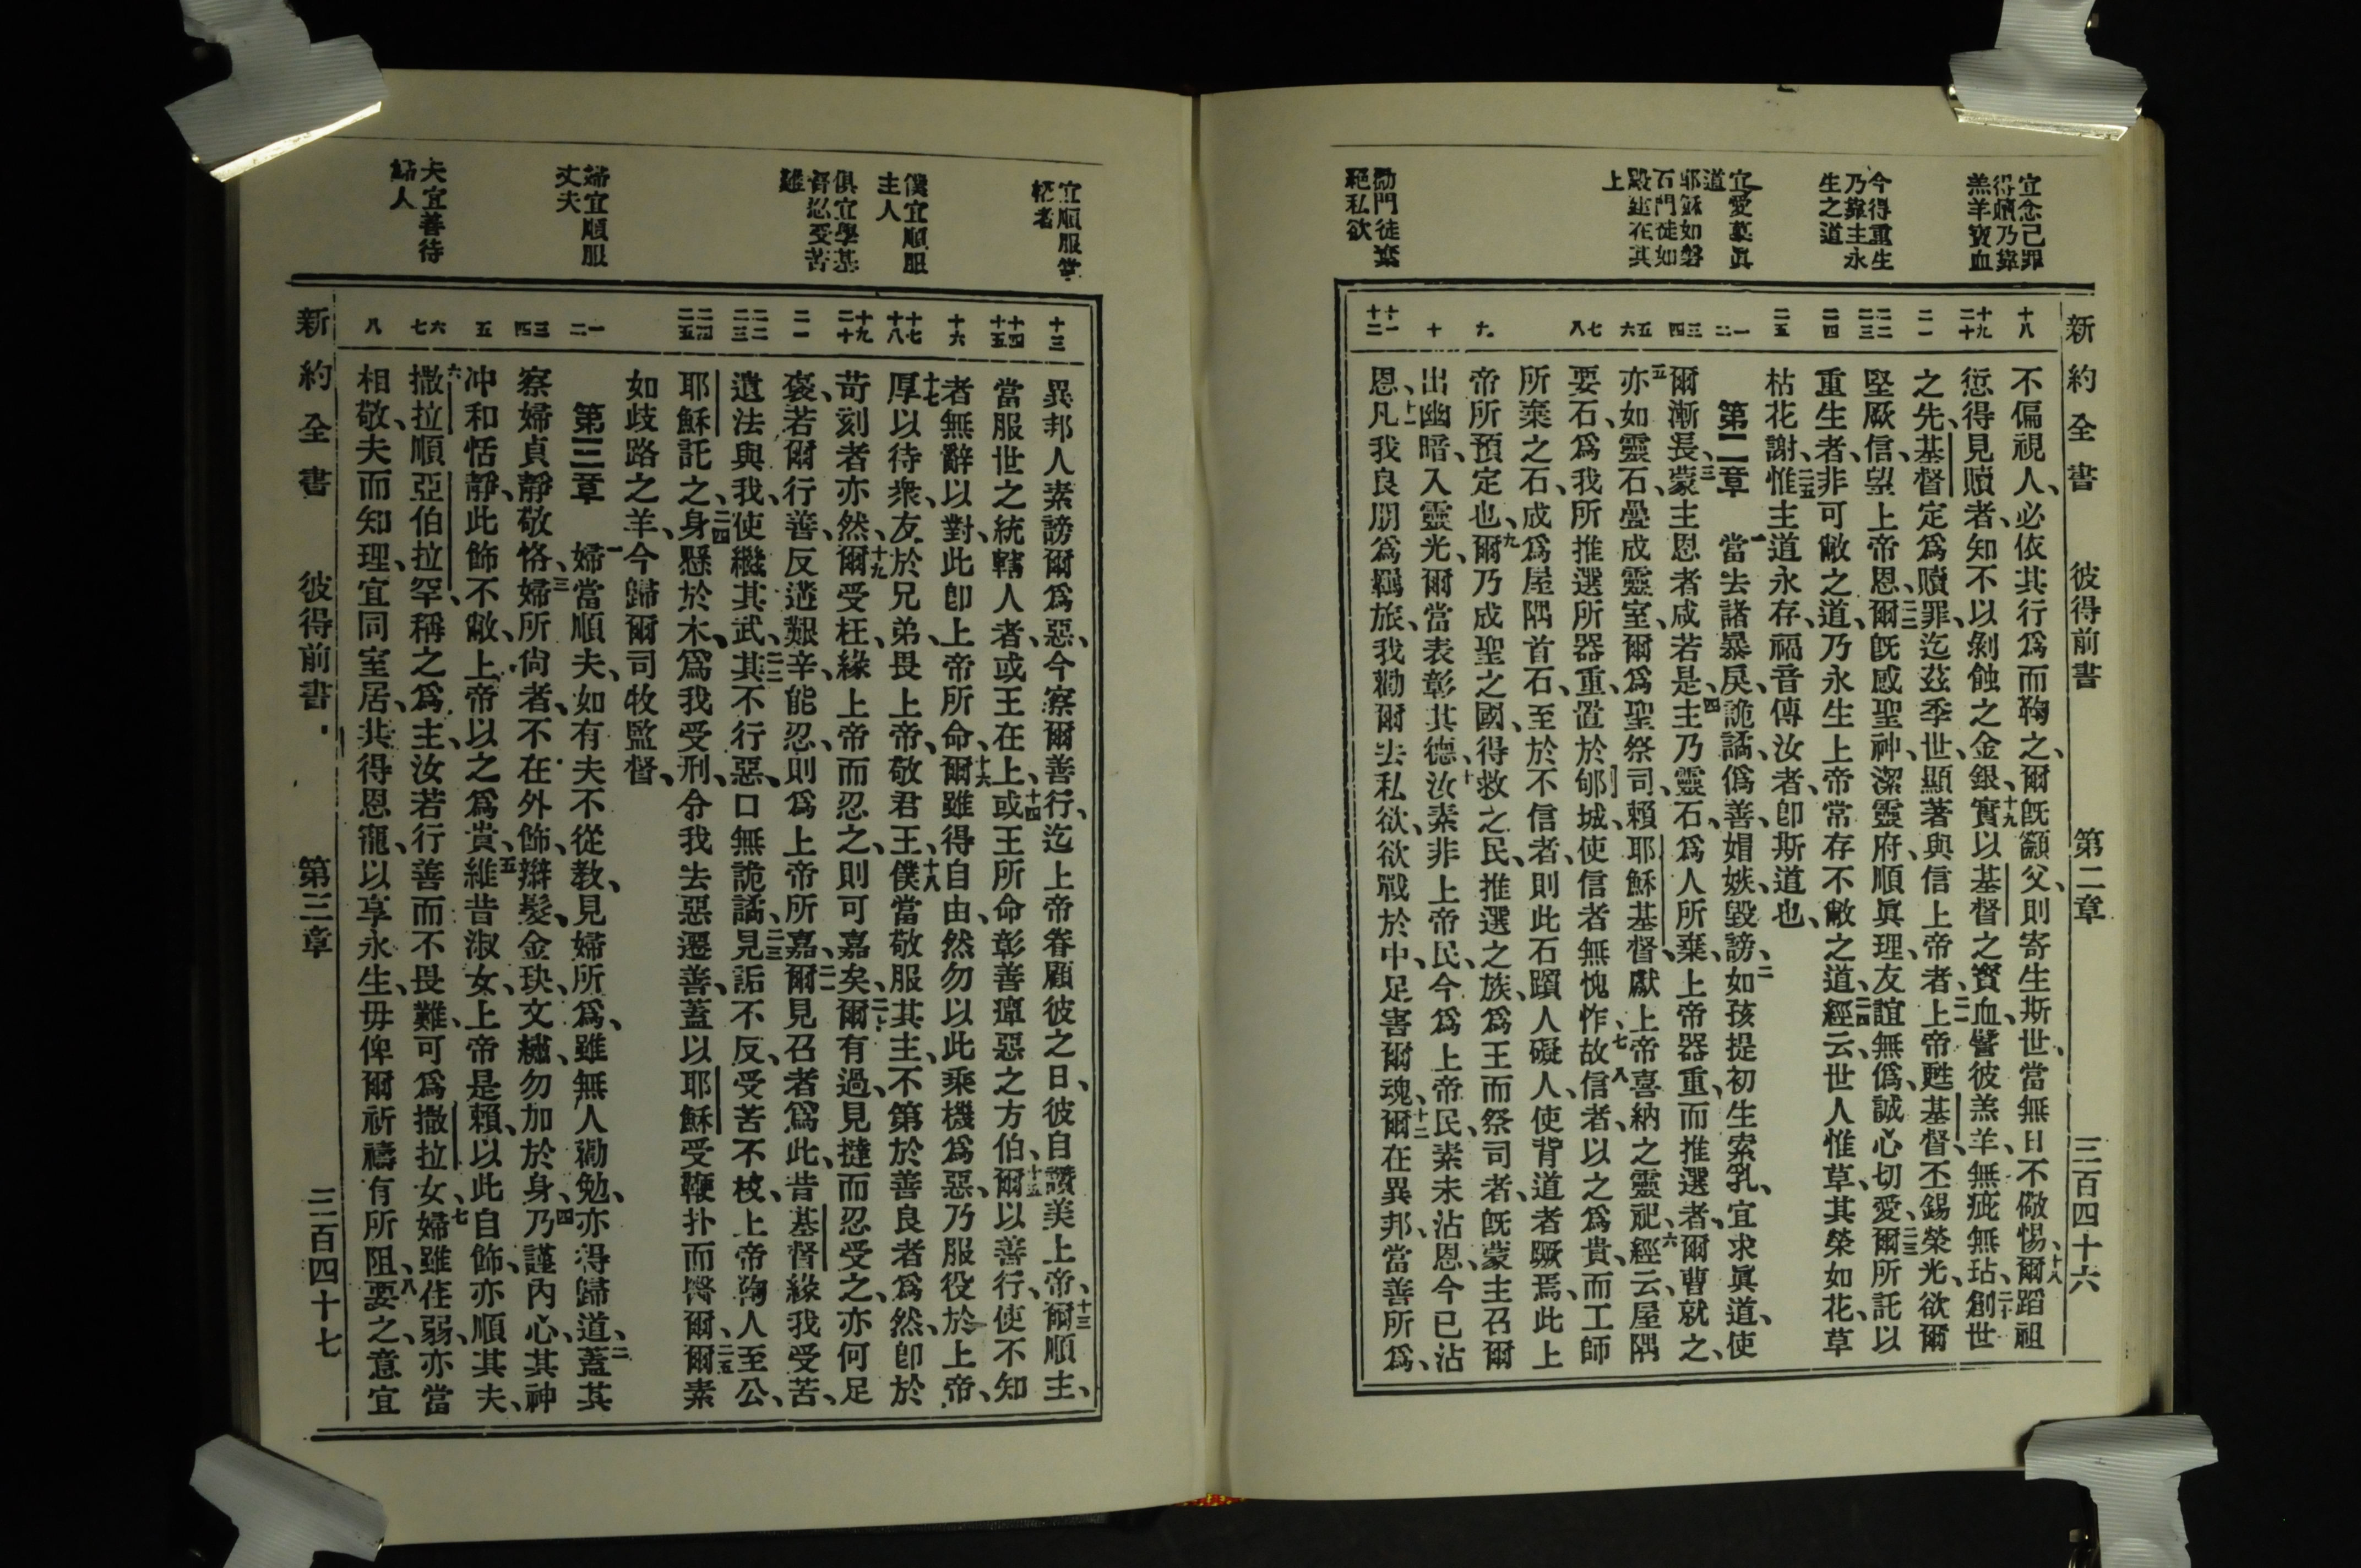 新約全書 彼得前書 第二章 三百四十六
宜念己罪
得贖乃靠
羔羊寶血
今得重生
乃靠主永
生之道
宜愛慕眞
道
耶穌如磐
石門徒如
殿建在其
上
勸門徒棄
絕私欲
十八
十九
二十
二一
二二
二三
二四
二五
一
二
三
四
五
六
七
八
九
十
十一
十二
不偏視人、必依其行爲而鞫之、爾旣籲父、則寄生斯世、當無日不儆惕、十八爾蹈祖
愆得見贖者、知不以剝蝕之金銀、十九實以基督之寶血、譬彼羔羊、無疵無玷、二十創世
之先、基督定爲贖罪、迄茲季世、顯著與信上帝者、二一上帝甦基督、丕錫榮光、欲爾
堅厥信、望上帝恩、二二爾旣感聖神、潔靈府、順眞理、友誼無僞、誠心切愛、二三爾所託以
重生者、非可敝之道、乃永生上帝常存不敝之道、二四經云、世人惟草、其榮如花、草
枯花謝、二五惟主道永存、福音傳汝者、卽斯道也、
第二章 一當去諸暴戾、詭譎、僞善、媢嫉、毀謗、二如孩提初生索乳、宜求眞道、使
爾漸長、三蒙主恩者咸若是、四主乃靈石、爲人所棄、上帝器重、而推選者、爾曹就之、
五亦如靈石、疊成靈室、爾爲聖祭司、賴耶穌基督、獻上帝喜納之靈祀、六經云、屋隅
要石、爲我所推選所器重、置於郇城、使信者無愧怍、七故信者、以之爲貴、八而工師
所棄之石、成爲屋隅首石、至於不信者、則此石躓人礙人、使背道者蹶焉、此上
帝所預定也、九爾乃成聖之國、得救之民、推選之族、爲王而祭司者、旣蒙主召爾
出幽暗、入靈光、爾當表彰其德、十汝素非上帝民、今爲上帝民、素未沾恩、今已沾
恩、十一凡我良朋爲羈旅、我勸爾去私欲、欲戰於中、足害爾魂、十二爾在異邦、當善所爲、
宜順服掌
權者
僕宜順服
主人
俱宜學基
督忍受苦
難
婦宜順服
丈夫
夫宜善待
婦人
十三
十四
十五
十六
十七
十八
十九
二十
二一
二二
二三
二四
二五
一
二
三
四
五
六
七
八
異邦人素謗爾爲惡、今察爾善行、迄上帝眷顧彼之日、彼自讚美上帝、十三爾順主、
當服世之統轄人者、或王在上、十四或王所命彰善癉惡之方伯、十五爾以善行、使不知
者無辭以對、此卽上帝所命、十六爾雖得自由、然勿以此乘機爲惡、乃服役於上帝、
十七厚以待衆、友於兄弟、畏上帝、敬君王、十八僕當敬服其主、不第於善良者爲然、卽於
苛刻者亦然、十九爾受枉、緣上帝而忍之、則可嘉矣、二十爾有過、見撻而忍受之、亦何足
褒、若爾行善、反遘艱辛、能忍、則爲上帝所嘉、二一爾見召者爲此、昔基督緣我受苦、
遺法與我、使繼其武、二二其不行惡、口無詭譎、二三見詬不反、受苦不校、上帝鞫人至公、
耶穌託之、二四身懸於木、爲我受刑、令我去惡遷善、蓋以耶穌受鞭扑而醫爾、二五爾素
如歧路之羊、今歸爾司牧監督、
第三章 一婦當順夫、如有夫不從教、見婦所爲、雖無人勸勉、亦得歸道、二蓋其
察婦貞靜敬恪、三婦所尙者、不在外飾、辮髮、金玦、文繡、勿加於身、四乃謹內心、其神
冲和恬靜、此飾不敝、上帝以之爲貴、五維昔淑女、上帝是賴、以此自飾、亦順其夫、
六撒拉順亞伯拉罕、稱之爲主、汝若行善而不畏難、可爲撒拉女、七婦雖荏弱、亦當
相敬、夫而知理、宜同室居、共得恩寵、以享永生、毋俾爾祈禱有所阻、八要之、意宜
新約全書 彼得前書 第三章 三百四十七